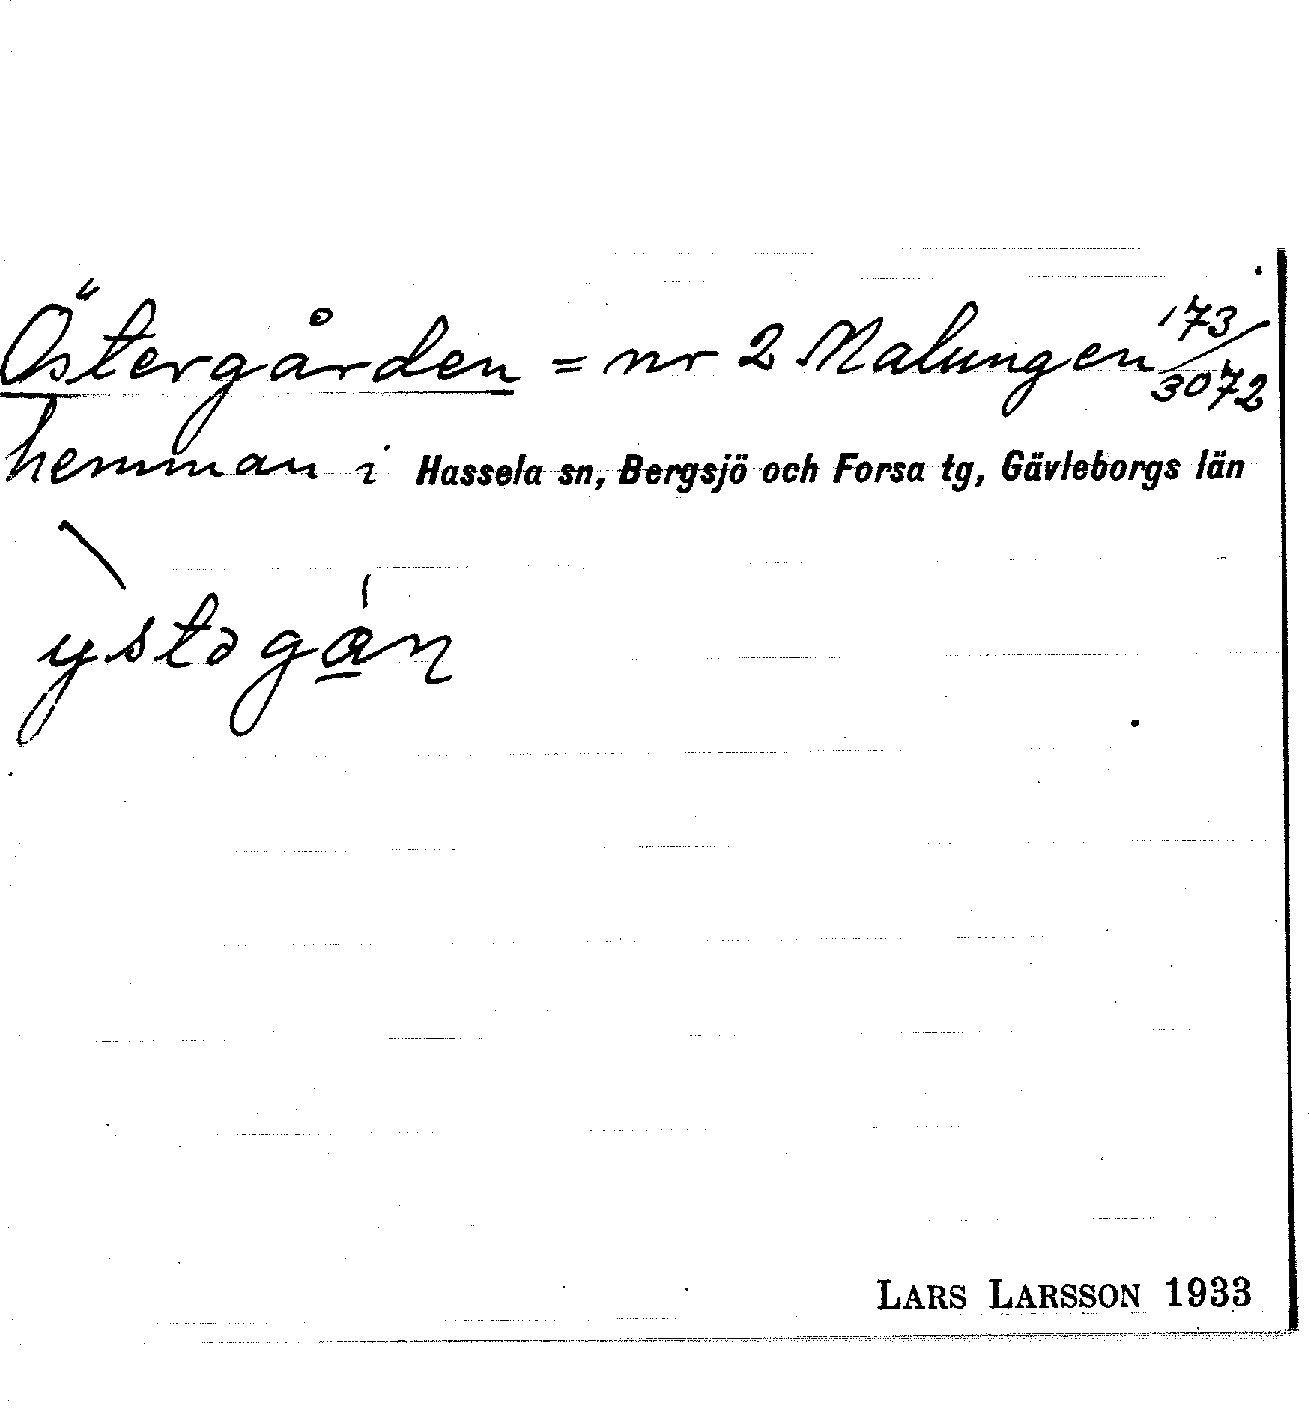 Östergården = nr 2 Malungen 173/3072
hemman i Hassela sn, Bergsjö och Forsa tg, Gävleborgs län
\ystəgɑ̠́ɳ
LARS LARSSON 1933